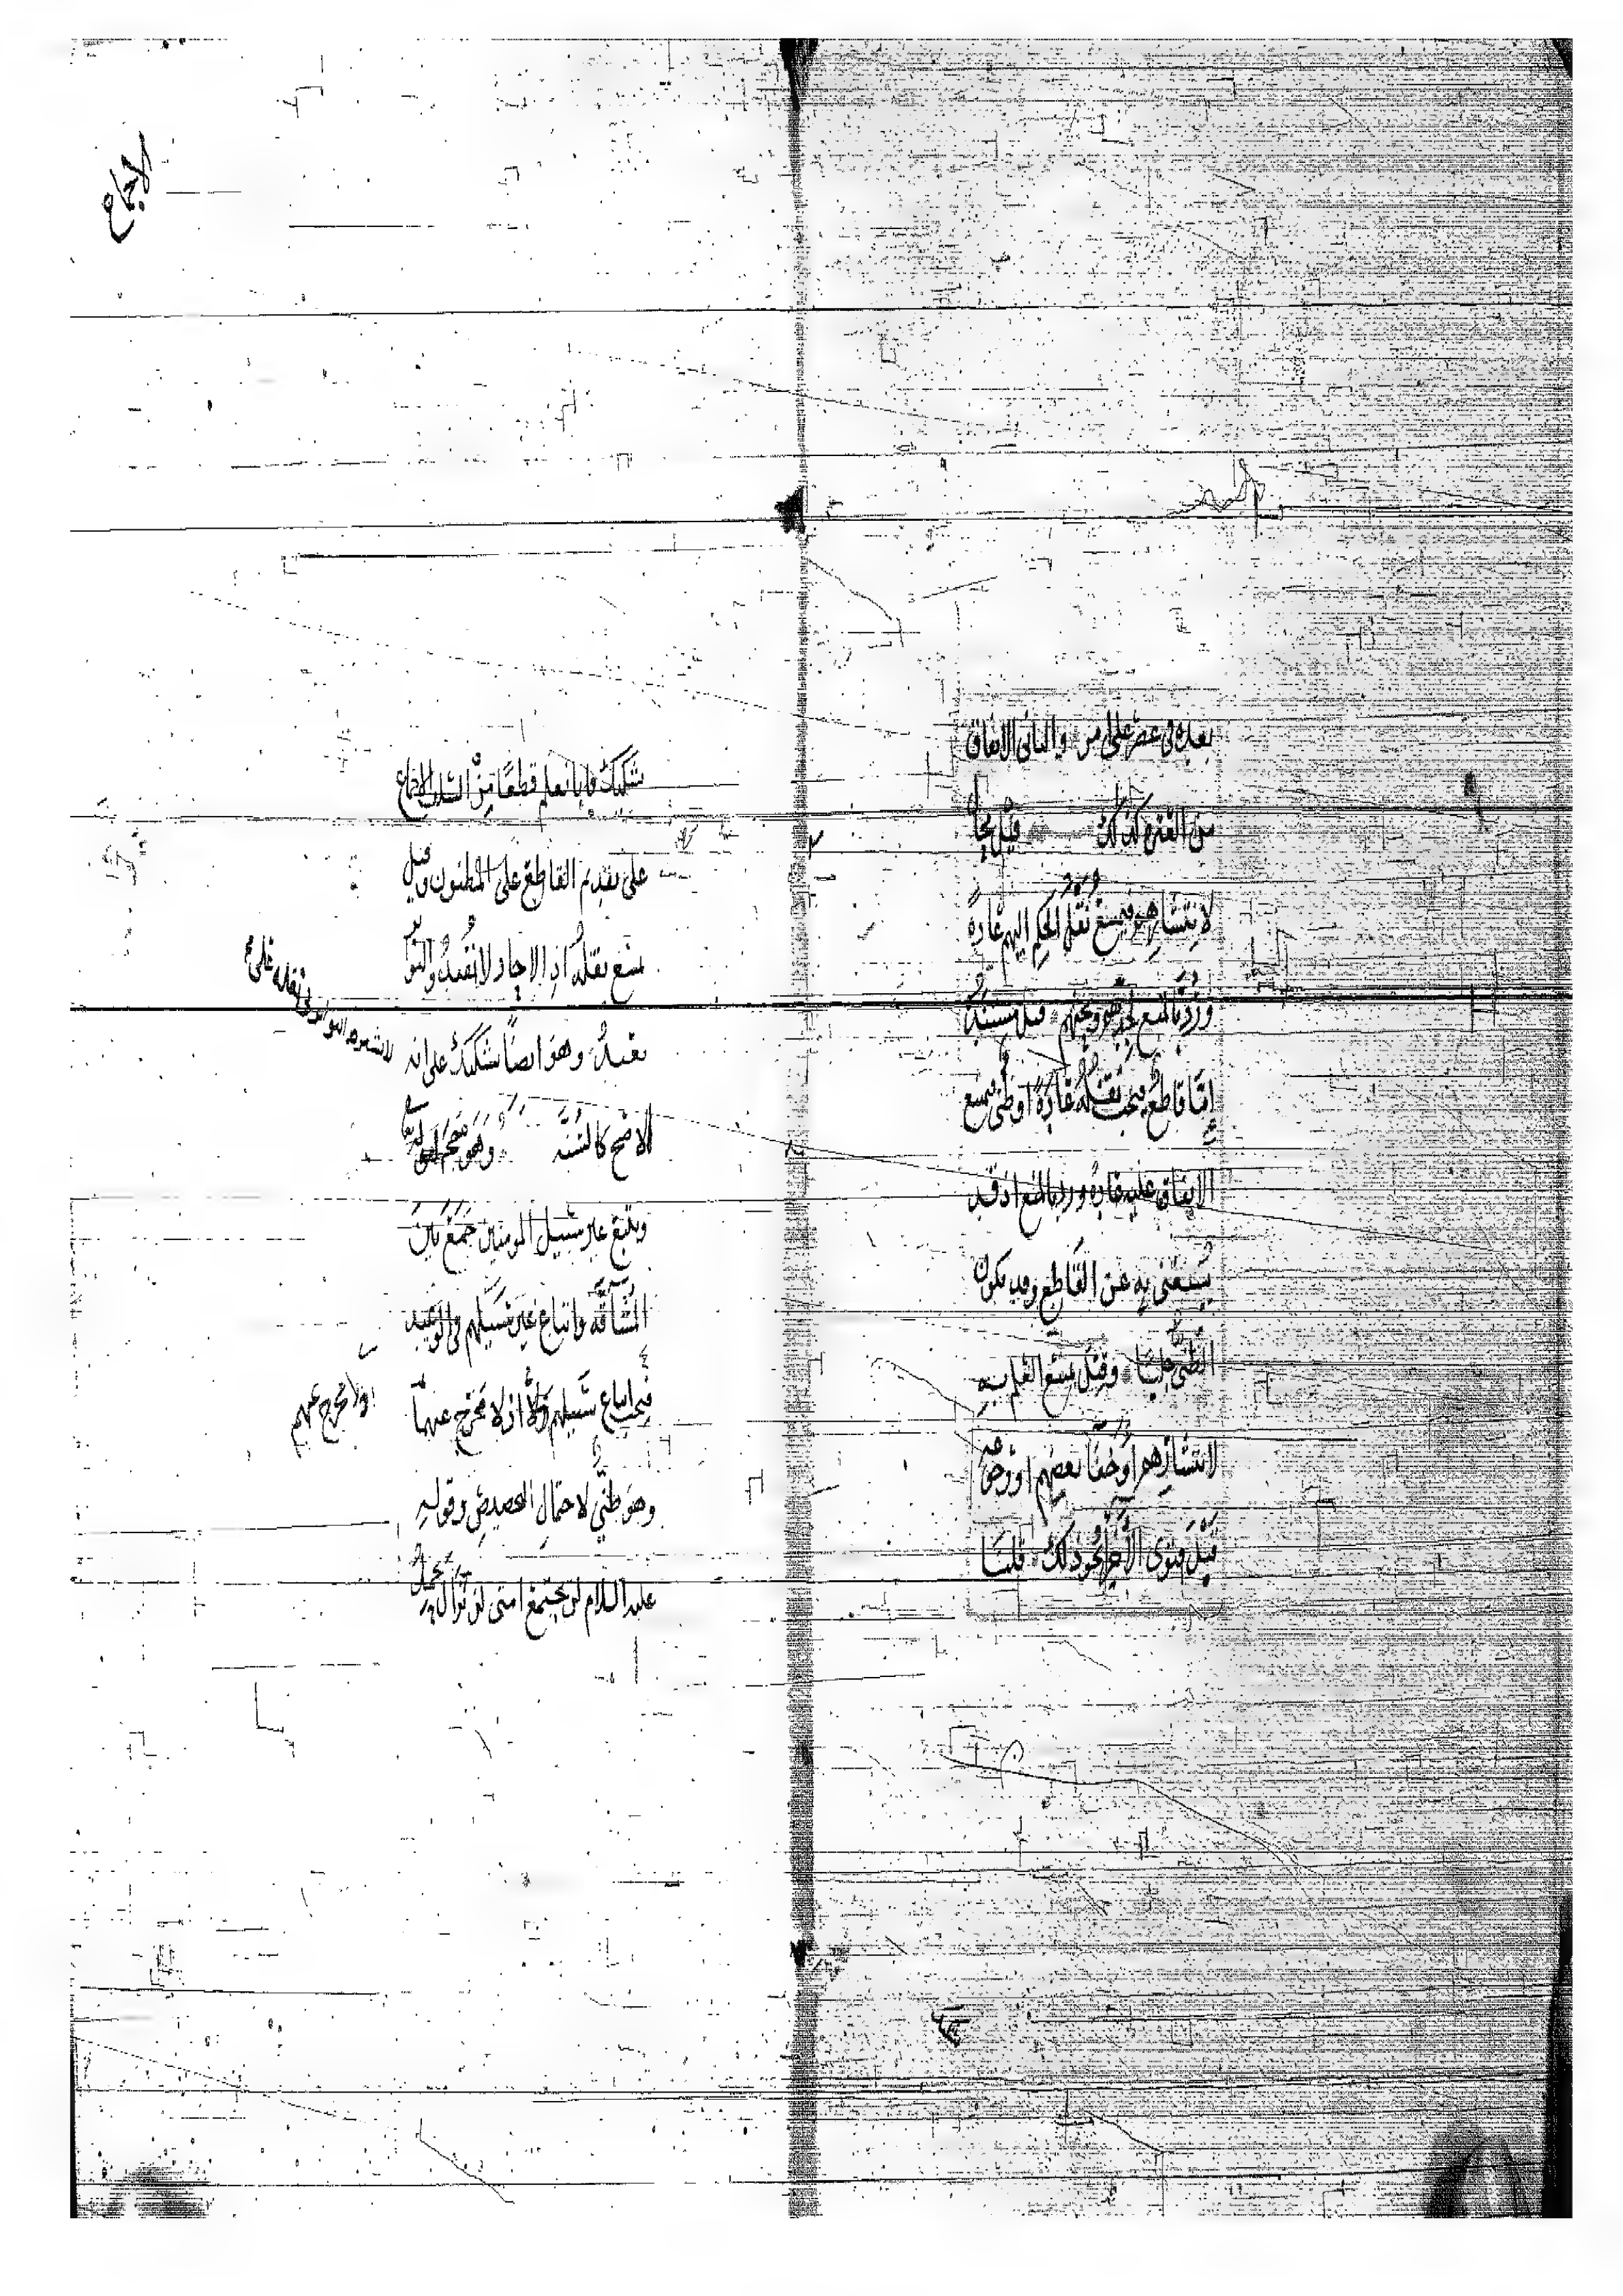 بعده في عصر على امر والثاني الاتفاق
من العترة كذلك قيل محال
لانتشارهم فيمتنع نقل الحكم اليهم عادة
ورد بالمنع لجدهم وبحثهم قيل مستنده
اما قاطع فيجب نقله عادة او ظني فيمتنع
الاتفاق عليه عادة ورد بالمنع اذ قد
يستغنى به عن القاطع وقد يكون
الظني جليا وقيل يمتنع العلم به
لانتشارهم او خفا بعضهم او رجوعه
قبل فتوى الآخر او نحو ذلك قلنا
الاجماع
تشكيك فإنا نعلم قطعا من السلف الاجماع
على تقديم القاطع على المظنون وقيل
يمتنع نقله اذ الاحاد لا تفيد والتواتر
بعيد وهو ايضا تشكيك على انه
لا يشترط التواتر في نقله على
الاصح كالسنة وهو حجة لقوله تعالى
ويتبع غير سبيل المومنين جمع بين
المشاقة واتباع غير سبيلهم في الوعيد
فيجب اتباع سبيلهم اذ لا مخرج عنهما
ولا مخرج عنهم
وهو ظني لاحتمال التخصيص وقوله
عليه السلام لن تجتمع امتي لن تزال